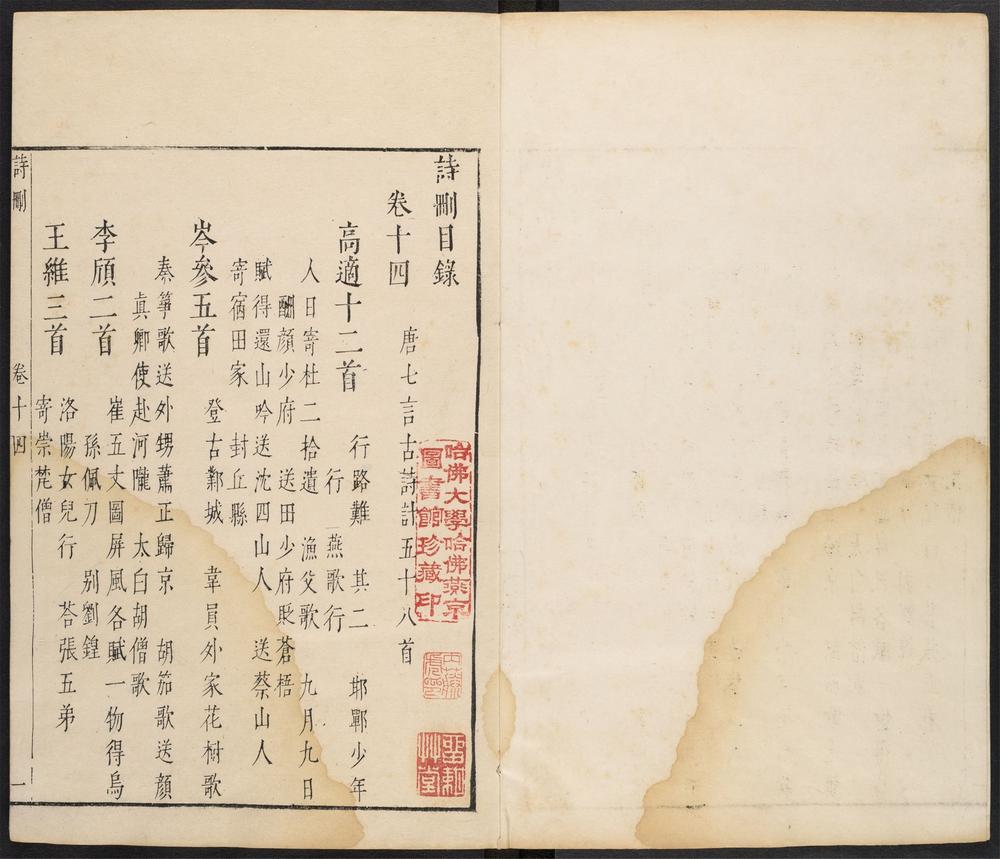 詩刪目錄
卷十四　唐七言古詩計五十八首
高適十二首
行路難　其二　邯鄲少年
行　燕歌行
人日寄杜二拾遺　漁父歌　九月九日
酬顏少府　送田少府貶蒼梧
賦得還山吟送沈四山人　送蔡山人
寄宿田家　封丘縣
岑參五首
登古鄴城　韋員外家花樹歌
秦箏歌送外甥蕭正歸京　胡笳歌送顏
真卿使赴河隴　太白胡僧歌
李頎二首
崔五丈圖屏風各賦一物得烏
孫佩刀　別劉鍠
王維三首
洛陽女兒行　荅張五弟
寄崇梵僧
詩刪
卷十四
一
哈佛大學哈佛燕京
圖書館珍藏印